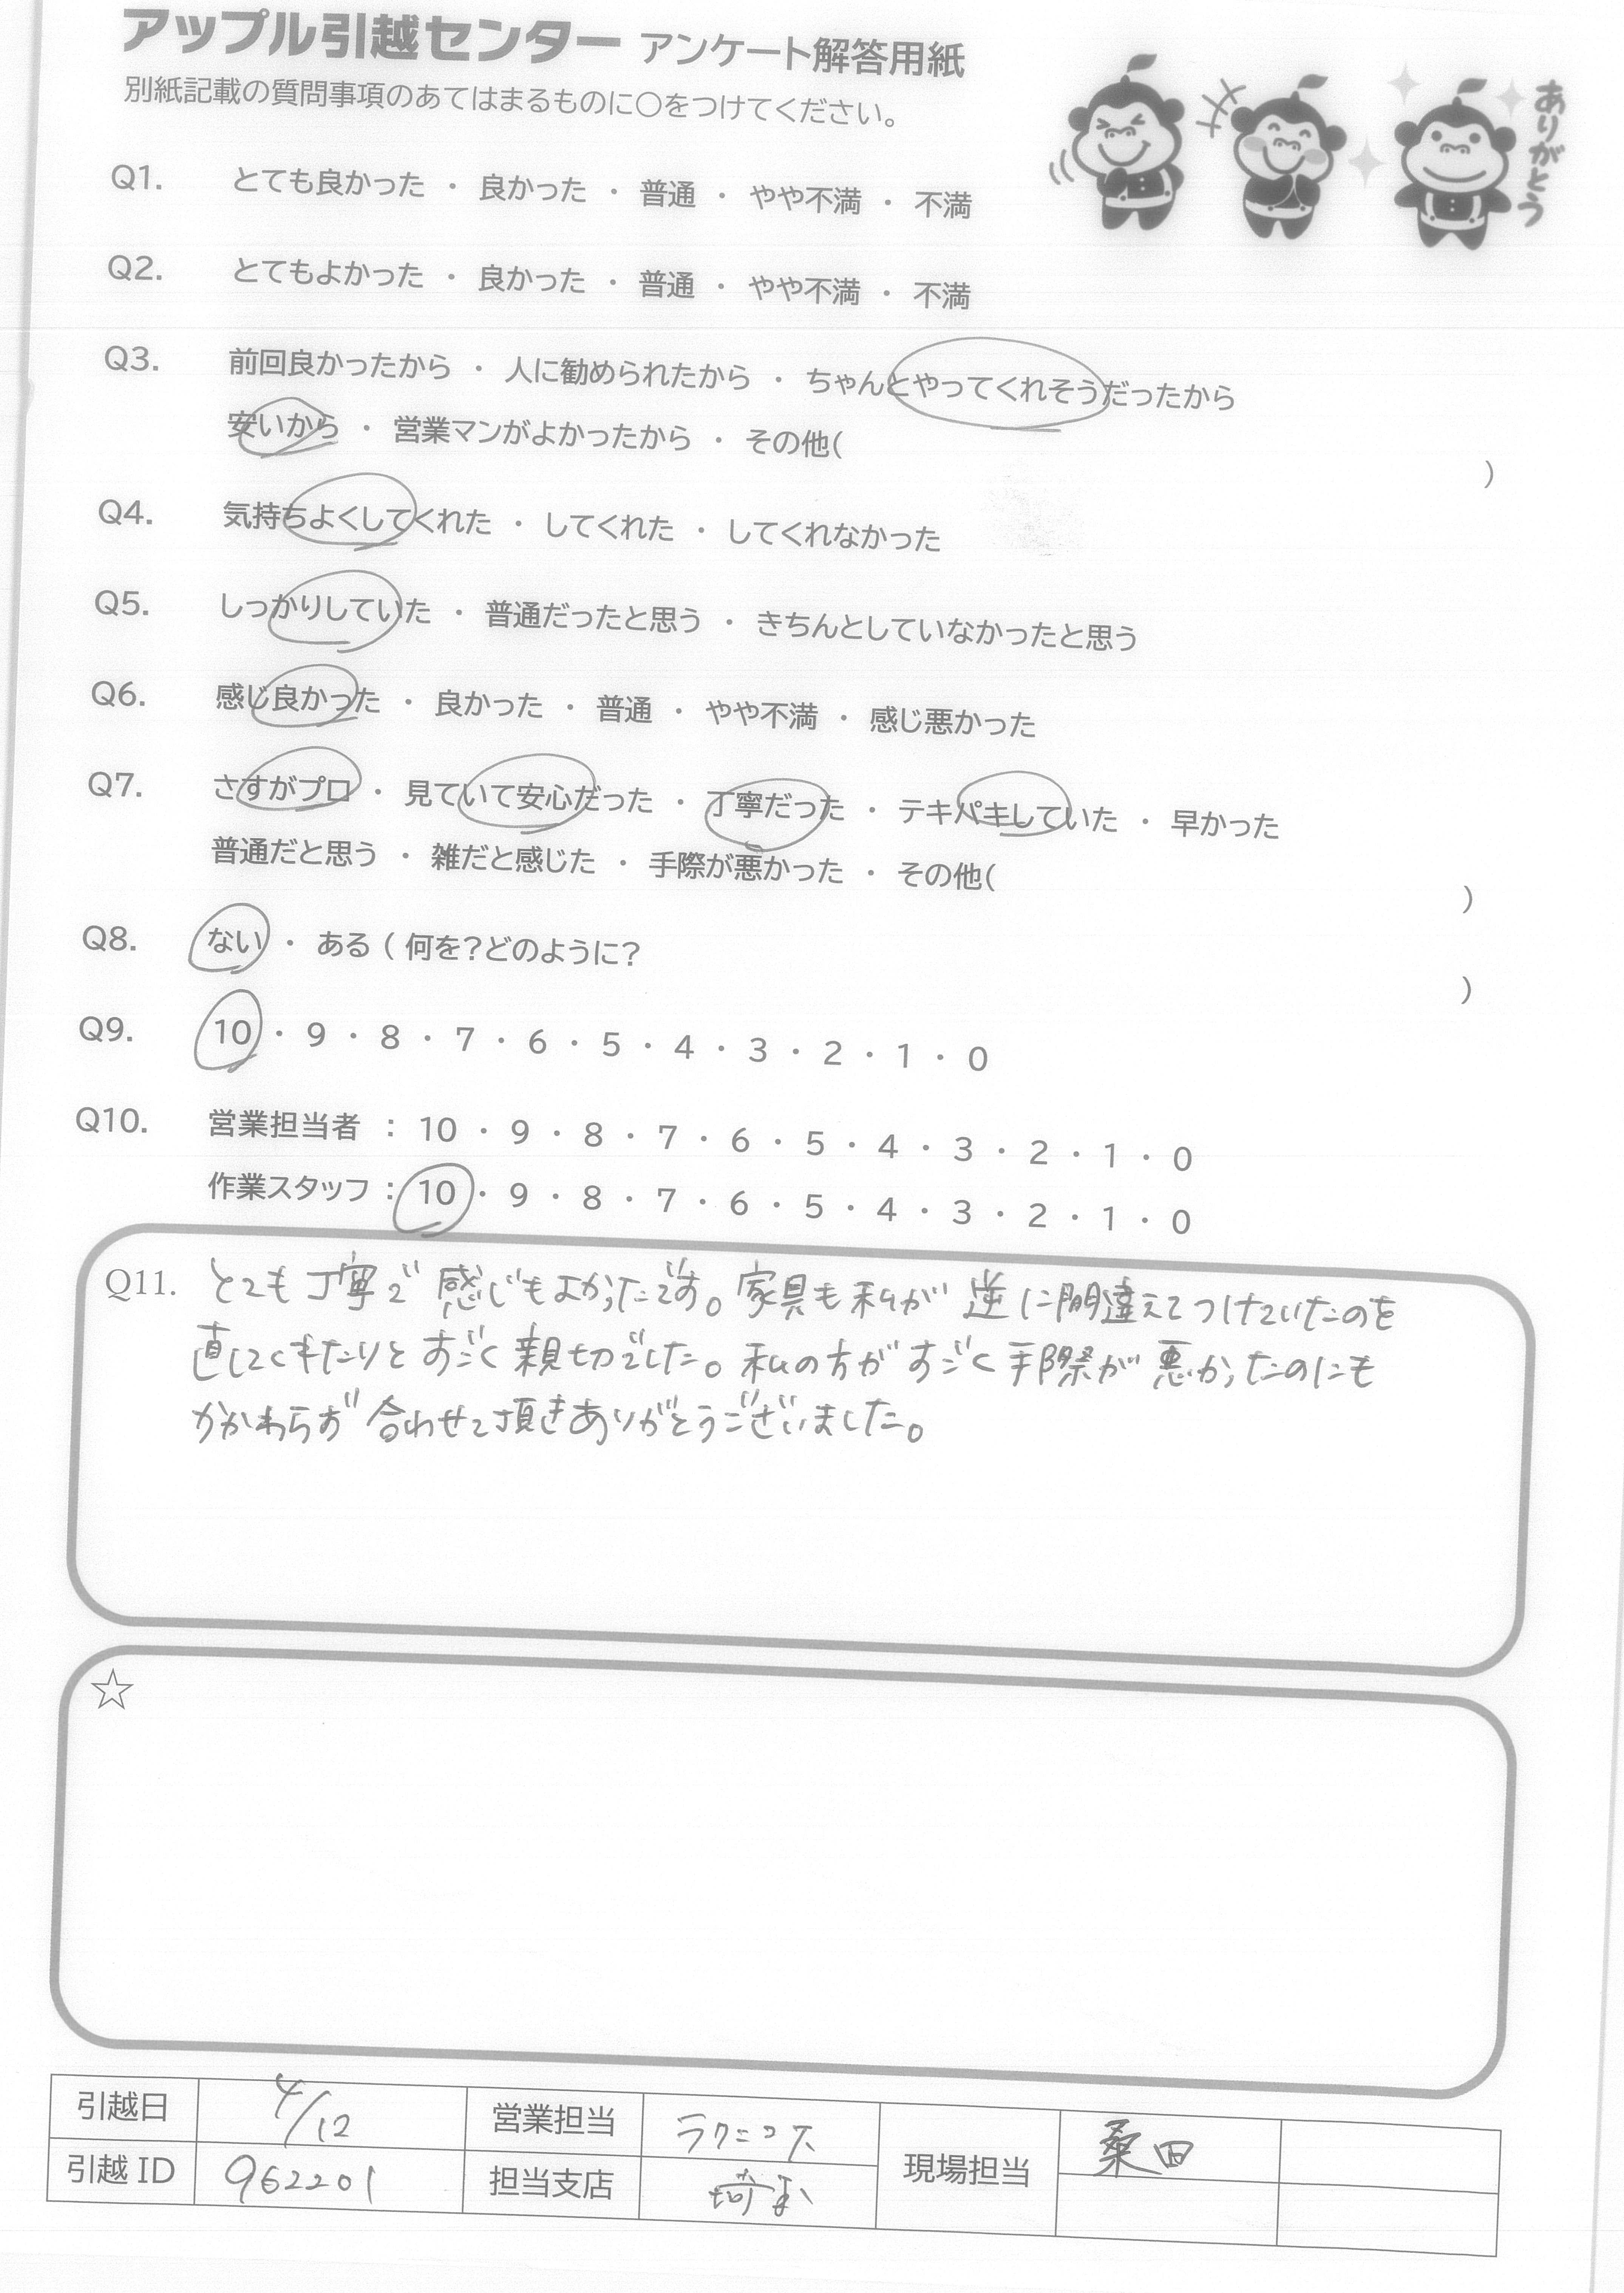 アップル引越センター アンケート解答用紙
別紙記載の質問事項のあてはまるものに〇をつけてください。
ありがとう
Q1. とても良かった ・ 良かった ・ 普通 ・ やや不満 ・ 不満
Q2. とてもよかった ・ 良かった ・ 普通 ・ やや不満 ・ 不満
Q3. 前回良かったから ・ 人に勧められたから ・ ちゃんとやってくれそうだったから
安いから ・ 営業マンがよかったから ・ その他( )
Q4. 気持ちよくしてくれた ・ してくれた ・ してくれなかった
Q5. しっかりしていた ・ 普通だったと思う ・ きちんとしていなかったと思う
Q6. 感じ良かった ・ 良かった ・ 普通 ・ やや不満 ・ 感じ悪かった
Q7. さすがプロ ・ 見ていて安心だった ・ 丁寧だった ・ テキパキしていた ・ 早かった
普通だと思う ・ 雑だと感じた ・ 手際が悪かった ・ その他( )
Q8. ない ・ ある ( 何を?どのように? )
Q9. 10 ・ 9 ・ 8 ・ 7 ・ 6 ・ 5 ・ 4 ・ 3 ・ 2 ・ 1 ・ 0
Q10. 営業担当者 : 10 ・ 9 ・ 8 ・ 7 ・ 6 ・ 5 ・ 4 ・ 3 ・ 2 ・ 1 ・ 0
作業スタッフ : 10 ・ 9 ・ 8 ・ 7 ・ 6 ・ 5 ・ 4 ・ 3 ・ 2 ・ 1 ・ 0
Q11. とても丁寧で 感じもよかったです。家具も私が 逆に間違えてつけていたのを
直してくれたりと すごく 親切でした。私の方が すごく 手際が 悪かったのにも
かかわらず 合わせて頂きありがとうございました。
☆
引越日 4/12 営業担当 ラクニコス 現場担当 桑田
引越ID 962201 担当支店 埼玉